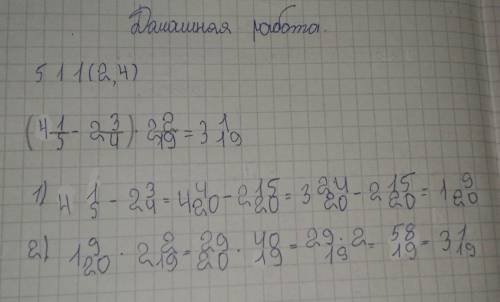 Дамашная работа.
5 1 1 (2,4)
(4 1/5 - 2 3/4) · 2 2/19 = 3 1/19
1) 4 1/5 - 2 3/4 = 4 4/20 - 2 15/20 = 3 24/20 - 2 15/20 = 1 9/20
2) 1 9/20 · 2 2/19 = 29/20 · 40/19 = 29·2/19 = 58/19 = 3 1/19